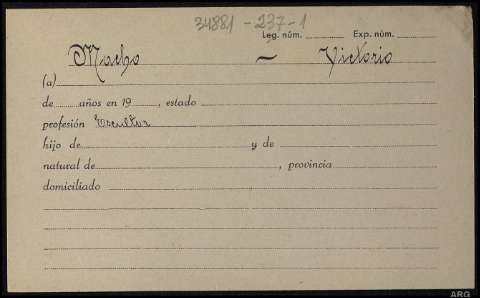 34881-237-1
Leg. núm. Exp. núm.
Macho — Victorio
(a)
de años en 19, estado
profesión Escultor
hijo de y de
natural de, provincia
domiciliado
ARG